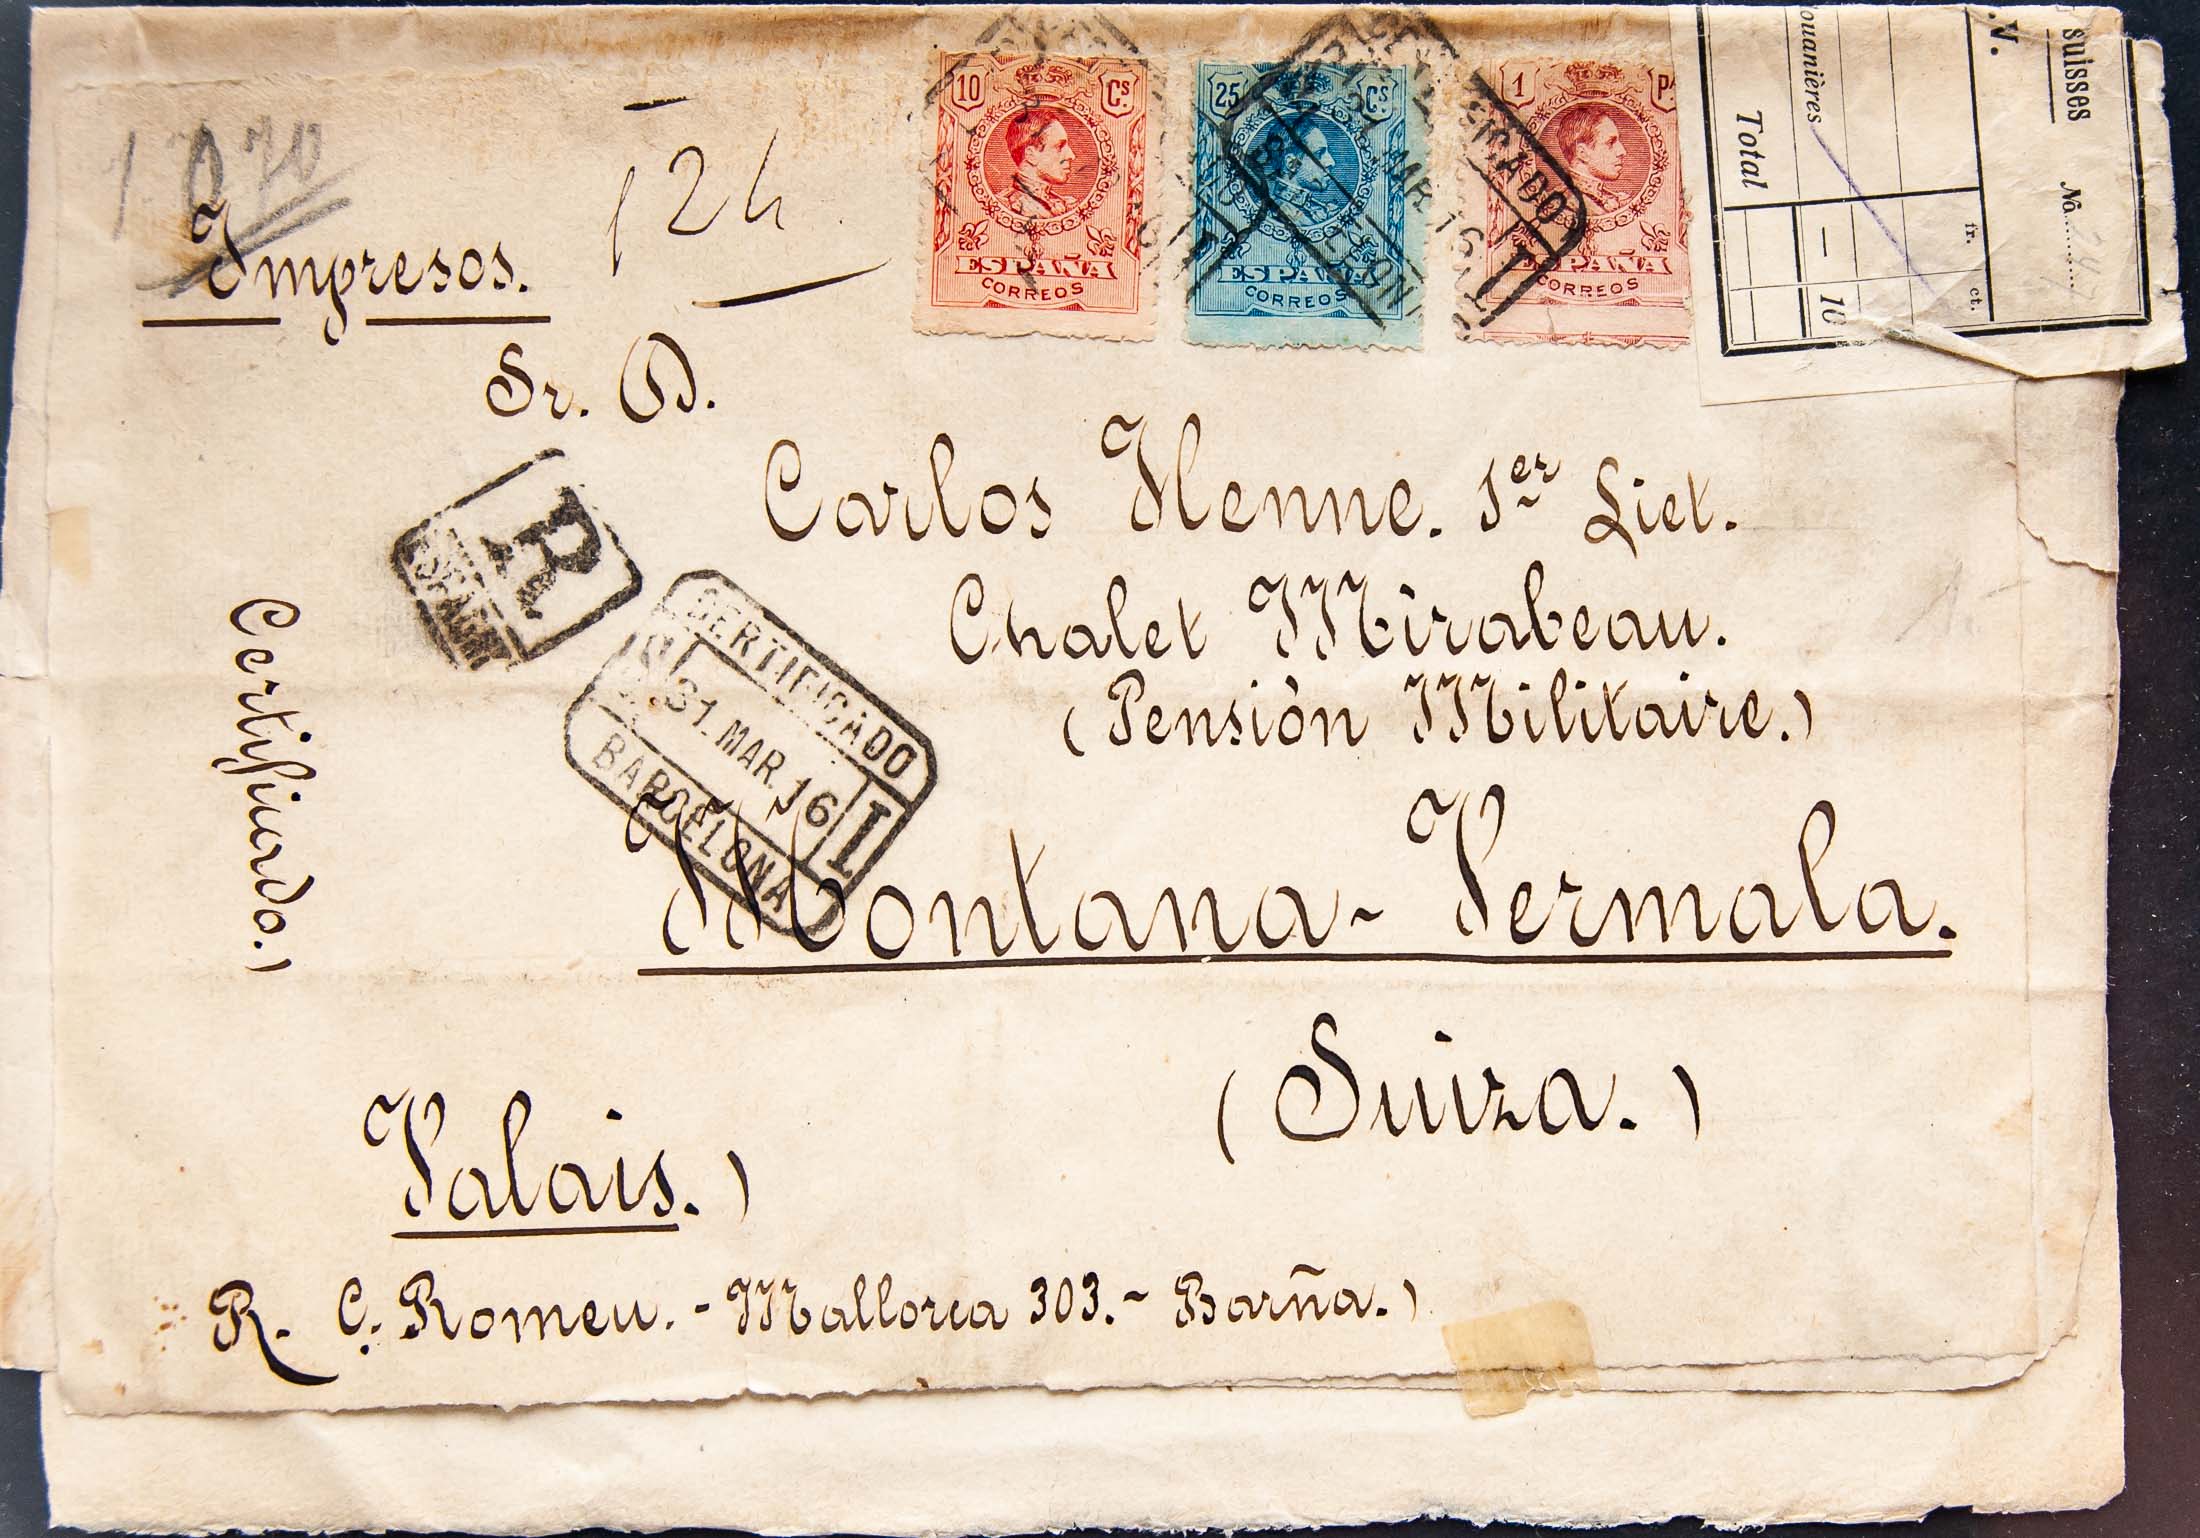 1.070
Impresos.
124
10 Cs.
ESPAÑA
CORREOS
25 Cs
ESPAÑA
CORREOS
1 P
ESPAÑA
CORREOS
CERTIFICADO
31 MAR 16 I
suisses
No. 247
.N.
fr. ct.
ouanières
— 10
Total
Sr. D.
Carlos Henne. 1er Liet.
Chalet Mirabeau.
(Pensión Militaire.)
R
CERTIFICADO
31. MAR. 16 I
BARCELONA
Certificado.)
Montana- Vermala.
(Suiza.)
Valais.)
R. C. Romeu. - Mallorca 303. - Barña.)